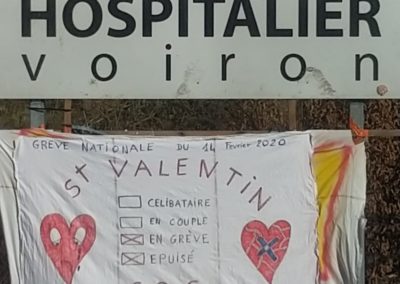 HOSPITALIER
voiron
GREVE NATIONALE DU 14 Février 2020
St VALENTIN
CELIBATAIRE
EN COUPLE
EN GRÈVE
EPUISÉ